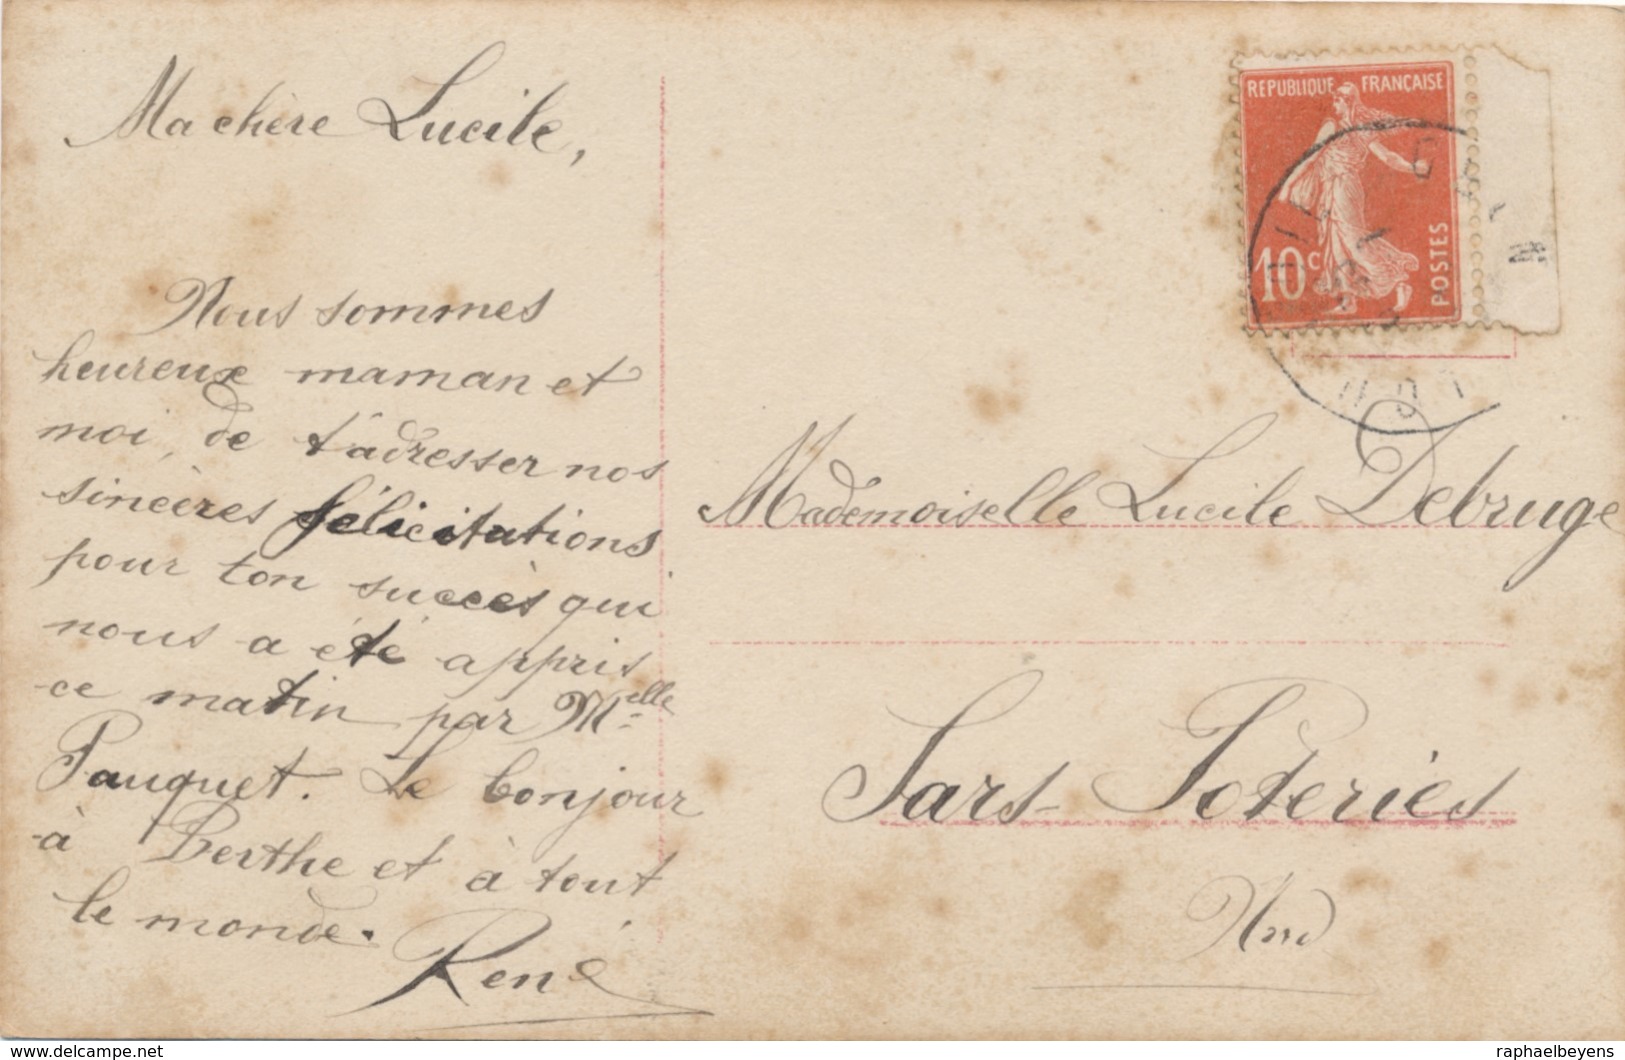 Ma chère Lucile,
Nous sommes
heureux maman et
moi, de t'adresser nos
sincères félicitations
pour ton succès qui
nous a été appris
ce matin par Melle
Pauquet. Le bonjour
à Berthe et à tout
le monde.
René
REPUBLIQUE FRANÇAISE
10c
POSTES
Mademoiselle Lucile Debruge
Sars-Poteries
Nord
www.delcampe.net
raphaelbeyens